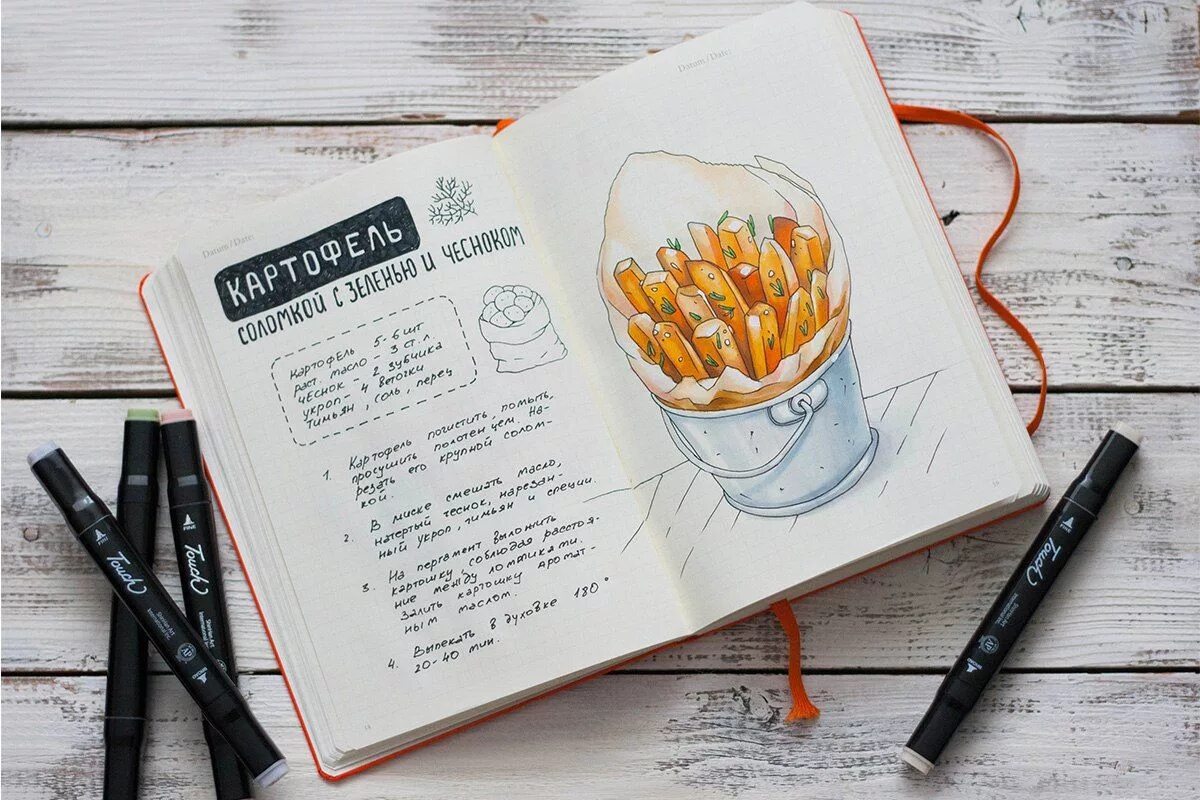 Datum/Date:
КАРТОФЕЛЬ
СОЛОМКОЙ С ЗЕЛЕНЬЮ И ЧЕСНОКОМ
Картофель 5-6 шт
раст. масло - 3 ст.л.
чеснок - 2 зубчика
укроп - 4 веточки
тимьян, соль, перец
1. Картофель почистить, помыть,
просушить полотенцем. На-
резать его крупной солом-
кой.
2. В миске смешать масло,
натертый чеснок, нарезан-
ный укроп, тимьян и специи.
3. На пергамент выложить
картошку, соблюдая расстоя-
ние между ломтиками.
Залить картошку аромат-
ным маслом.
4. Выпекать в духовке 180°
20-40 мин.
Datum/Date:
FINE
Touch
ShinHan Art
International Inc.
AP
FINE
Touch
Touch
ShinHan Art
International Inc.
AP